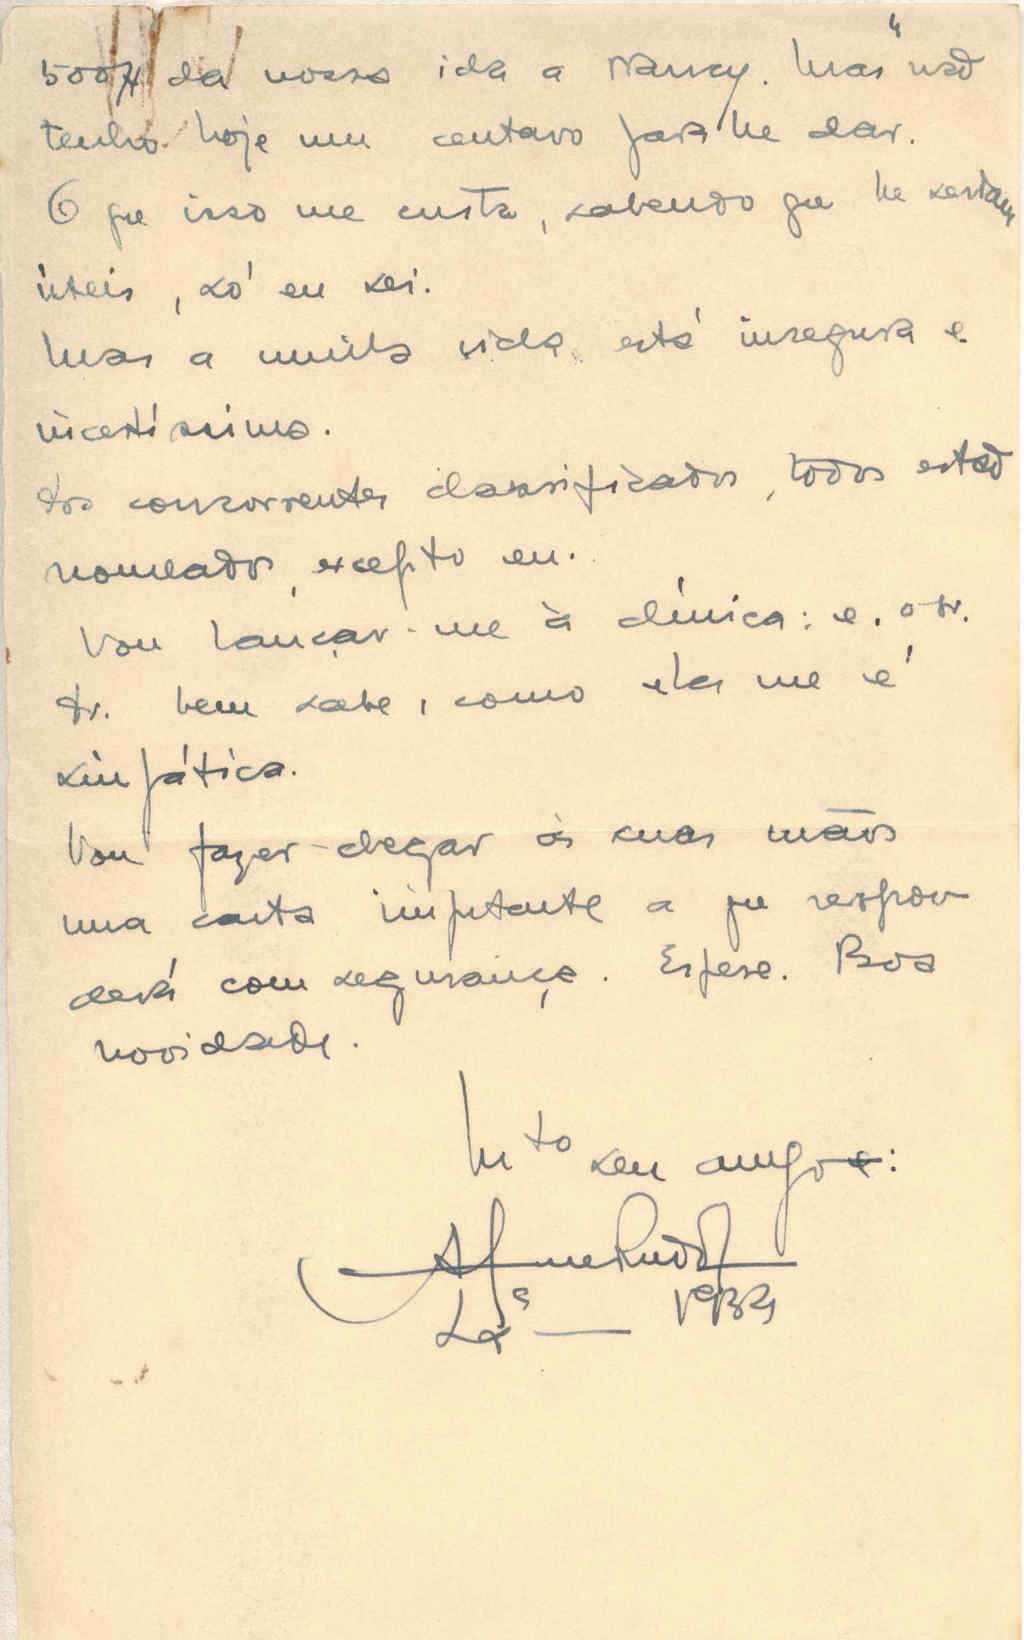 500$ da nossa ida a Nancy. Mas não
tenho hoje um centavo para lhe dar.
O que isso me custa, sabendo que lhe seriam
úteis, só eu sei.
Mas a minha vida está insegura e
incertíssima.
Dos concorrentes classificados, todos estão
nomeados, excepto eu.
Vou lançar-me à clínica: e, o sr.
dr. bem sabe, como ela me é
simpática.
Vou fazer chegar às suas mãos
uma carta importante a que respon
derá com segurança. Espere. Boa
novidade.
Mto seu amigo:
Lxa